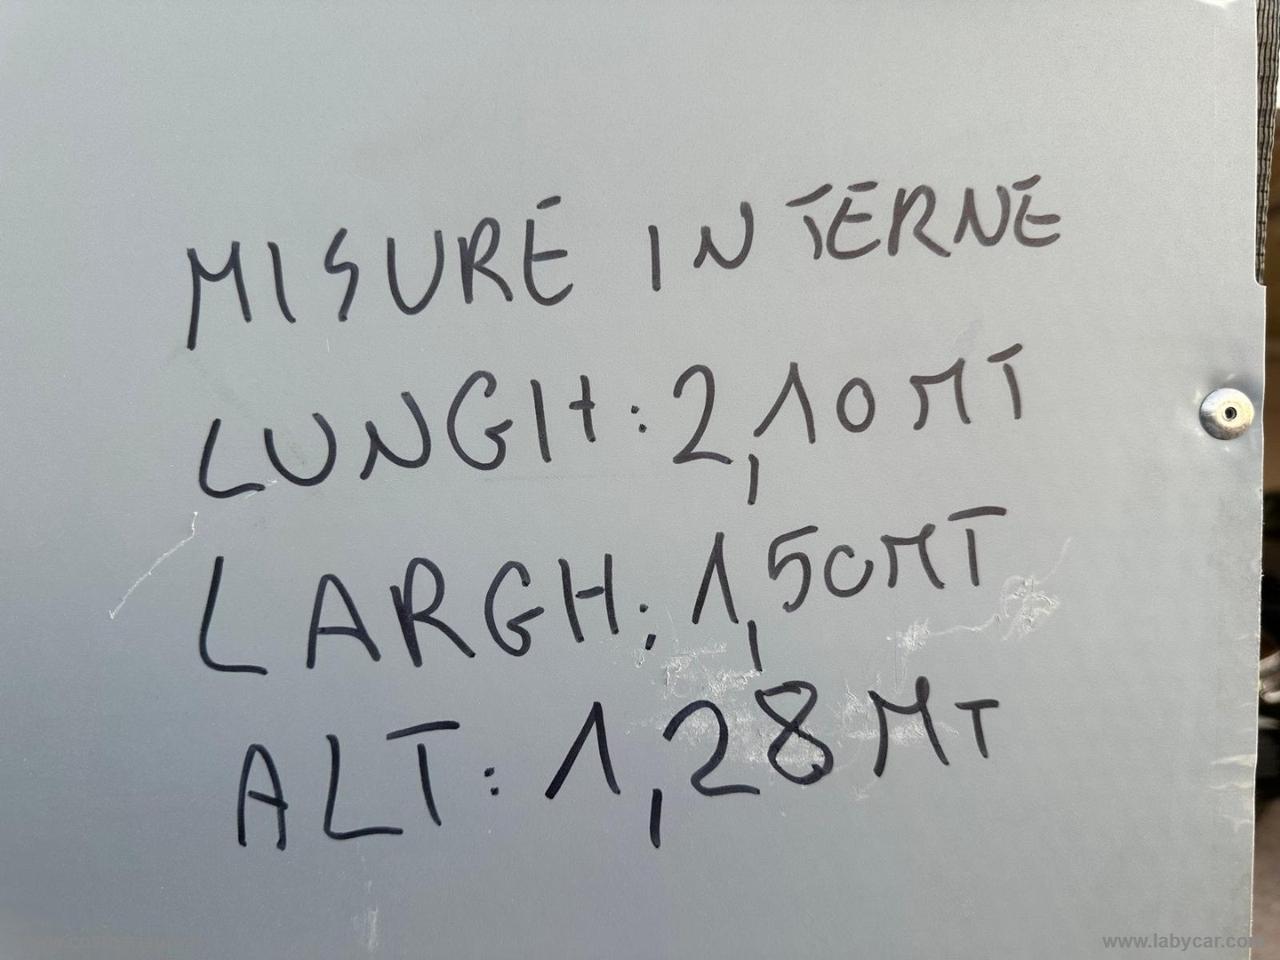 MISURE INTERNE
LUNGH: 2,10 MT
LARGH: 1,50 MT
ALT: 1,28 MT
www.labycar.com